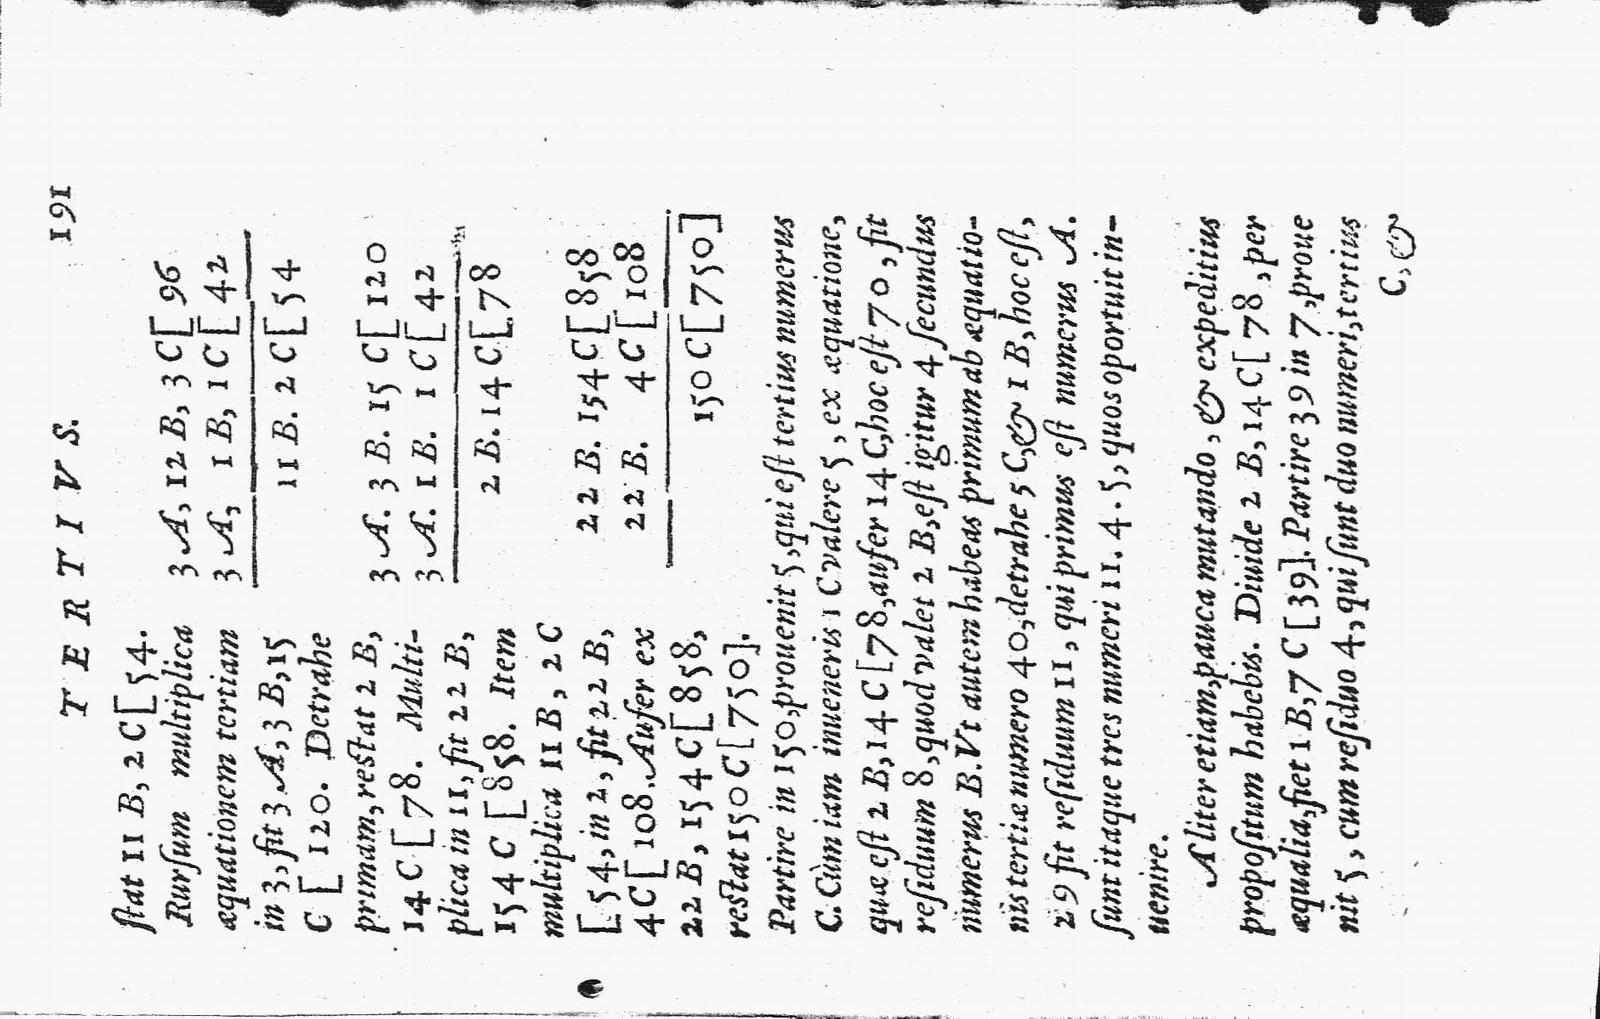 T E R T I V S. 191
ſtat 11 B, 2 C[54.
Rurſum multiplica
æquationem tertiam
in 3, fit 3 A, 3 B, 15
C [120. Detrahe
primam, reſtat 2 B,
14 C [78. Multi-
plica in 11, fit 22 B,
154 C [858. Item
multiplica 11 B, 2 C
[54, in 2, fit 22 B,
4 C[108. Aufer ex
22 B, 154 C[858,
reſtat 150 C [750].
3 A, 12 B, 3 C[96
3 A, 1 B, 1 C[42
11 B. 2 C[54
3 A. 3 B. 15 C[120
3 A. 1 B. 1 C[42
2 B. 14 C[78
22 B. 154 C[858
22 B. 4 C[108
150 C[750]
Partire in 150, prouenit 5, qui eſt tertius numerus
C. Cùm iam inueneris 1 C valere 5, ex æquatione,
quæ eſt 2 B, 14 C [78, aufer 14 C, hoc eſt 70, fit
reſiduum 8, quod valet 2 B, eſt igitur 4 ſecundus
numerus B. Vt autem habeas primum ab æquatio-
nis tertiæ numero 40, detrahe 5 C, & 1 B, hoc eſt,
29 fit reſiduum 11, qui primus eſt numerus A.
ſunt itaque tres numeri 11. 4. 5, quos oportuit in-
uenire.
Aliter etiam, pauca mutando, & expeditius
propoſitum habebis. Diuide 2 B, 14 C [78, per
æqualia, fiet 1 B, 7 C [39]. Partire 39 in 7, proue
nit 5, cum reſiduo 4, qui ſunt duo numeri, tertius
C, &